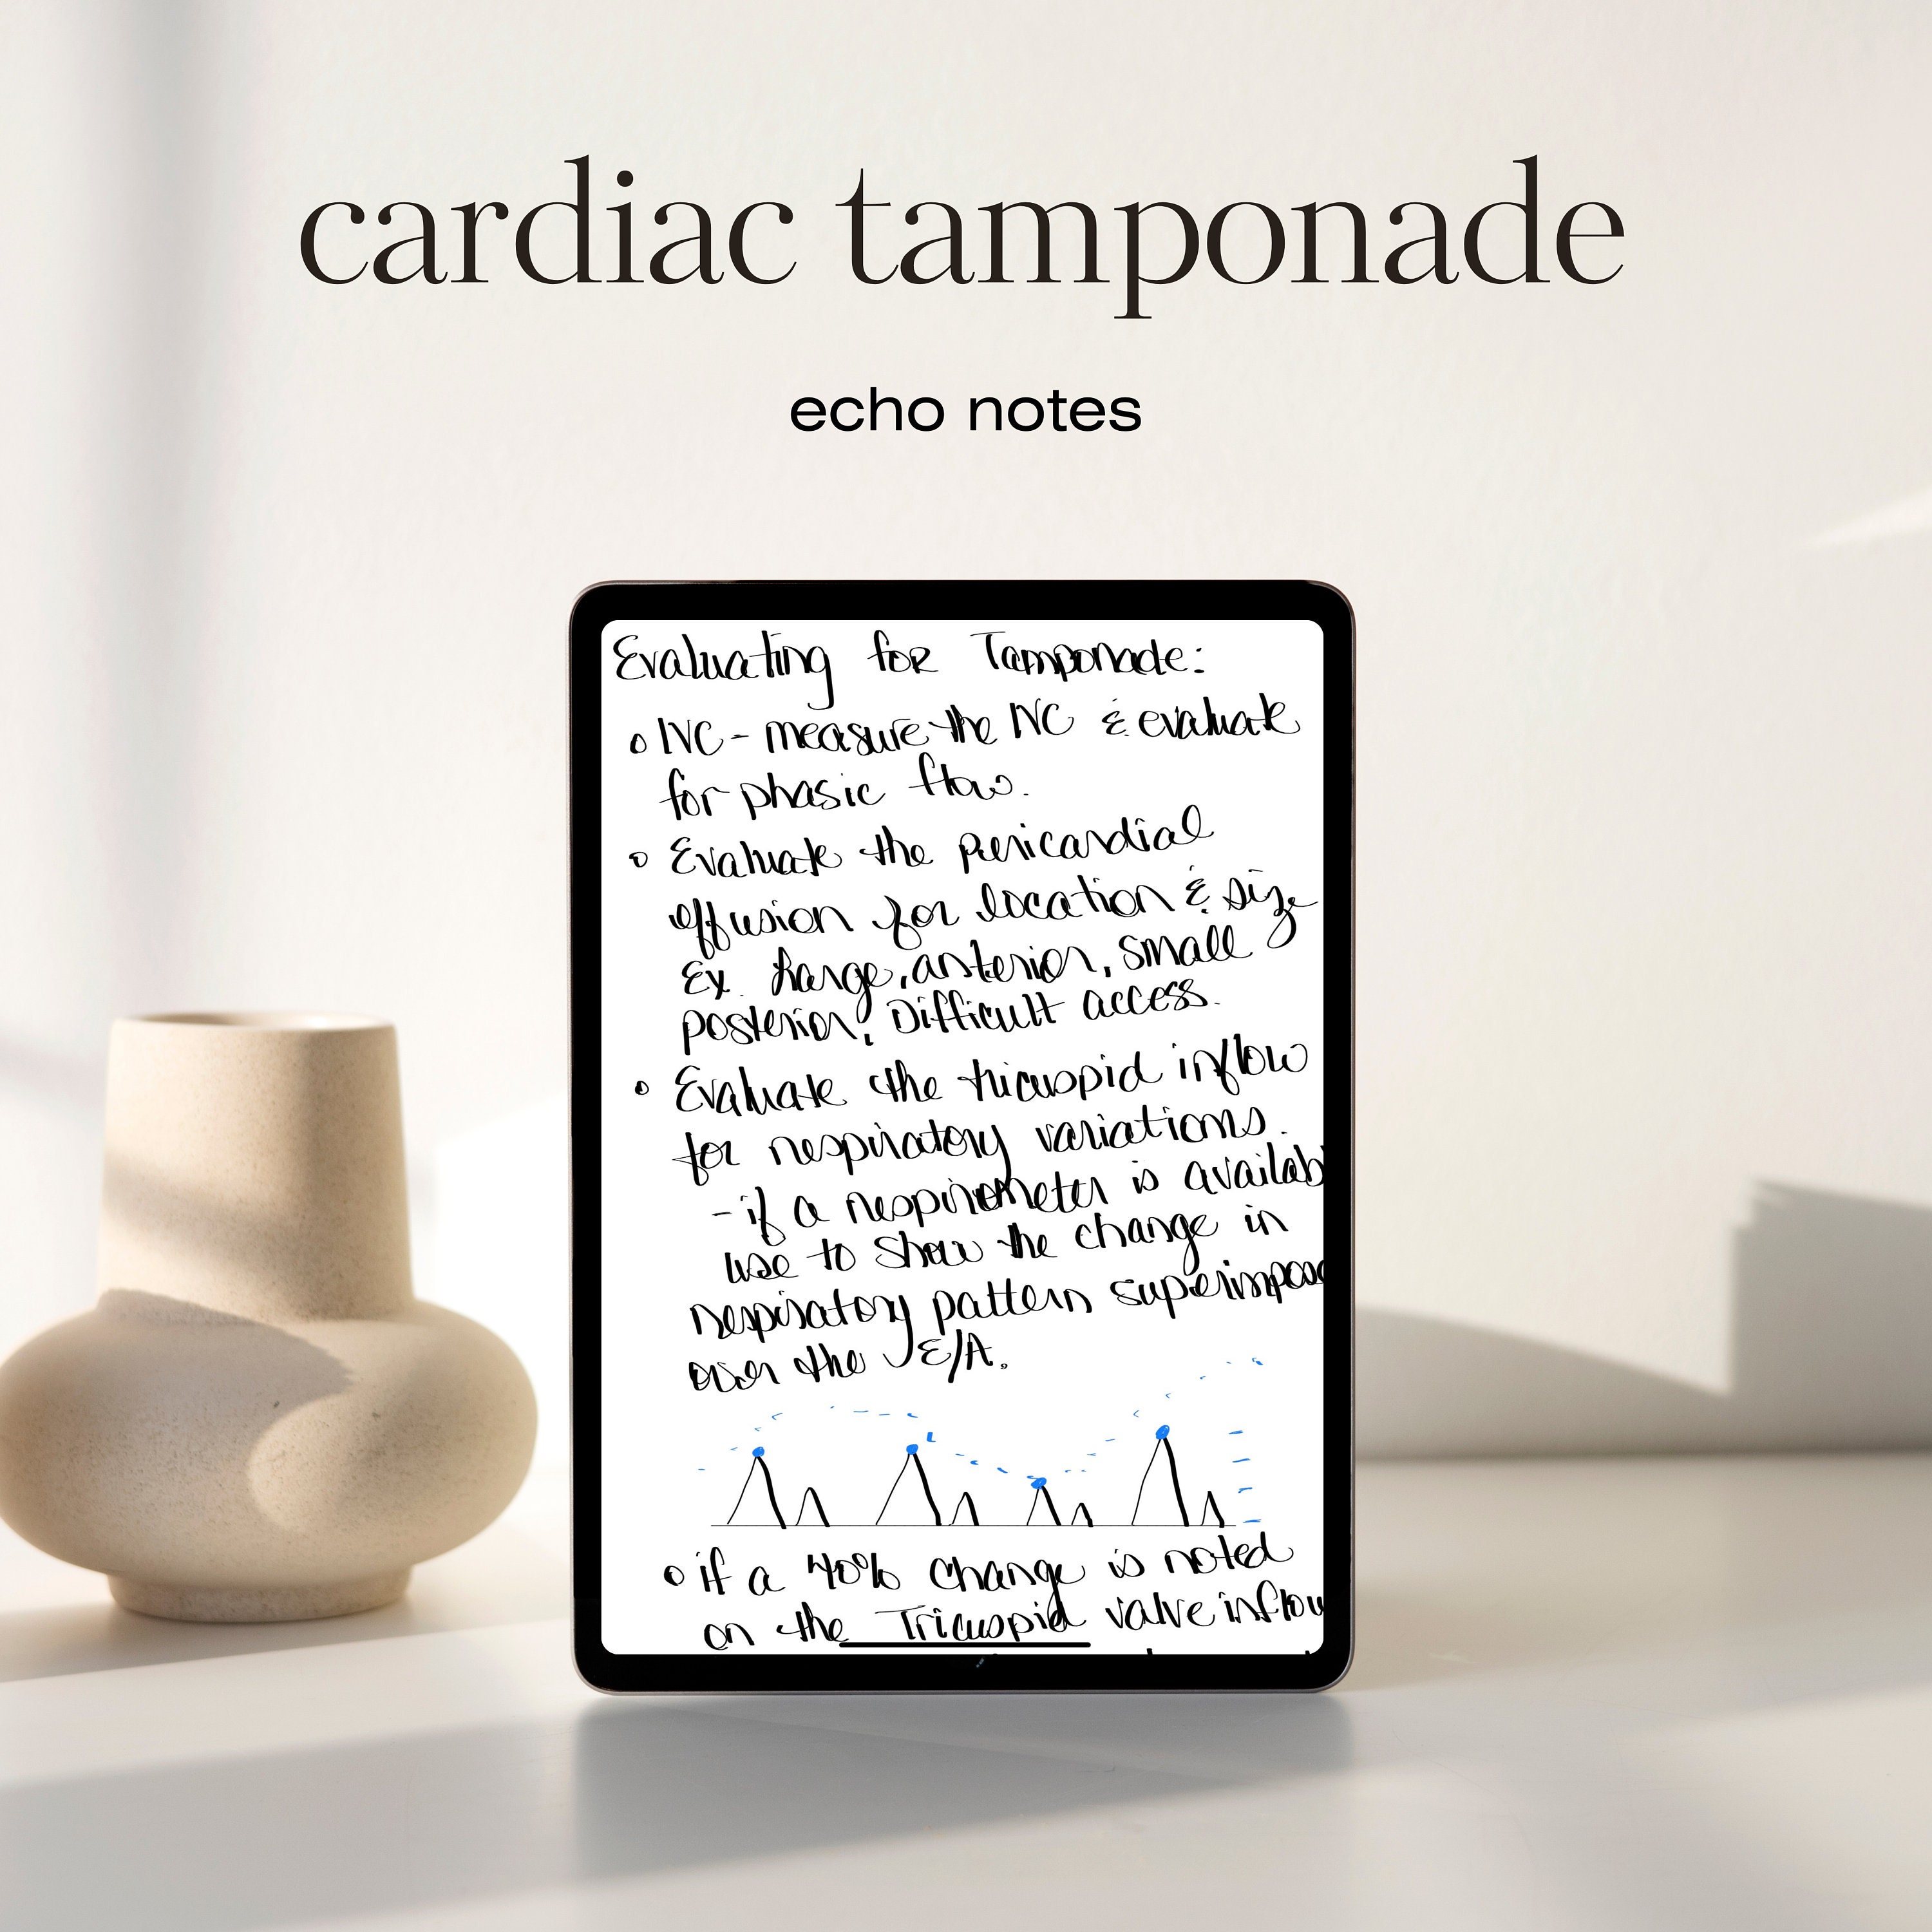 cardiac tamponade
echo notes
Evaluating for Tamponade:
IVC - measure the IVC & evaluate
for phasic flow.
Evaluate the pericardial
effusion for location & size
Ex. Large, anterior, small
posterior, Difficult access.
Evaluate the tricuspid inflow
for respiratory variations.
- if a respirometer is availab
use to show the change in
respiratory pattern superimpose
over the E/A.
if a 40% change is noted
on the Tricuspid valve inflow